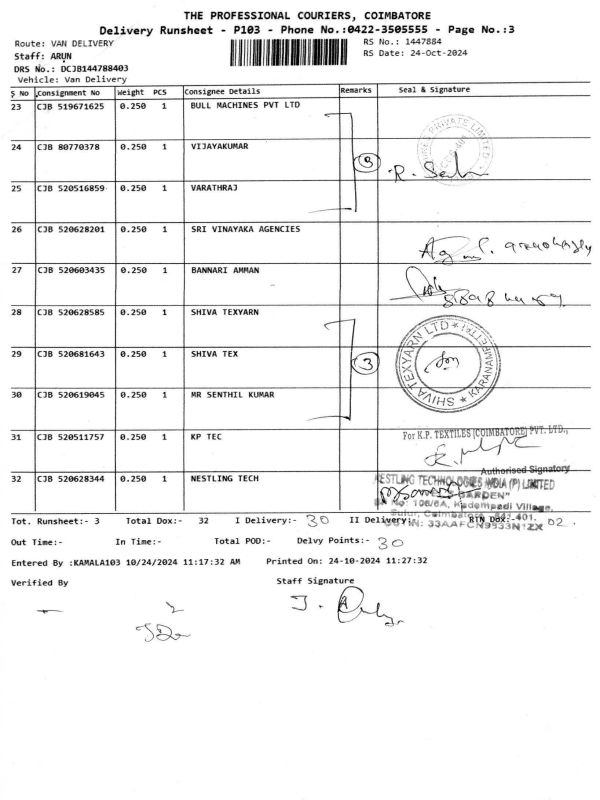 THE PROFESSIONAL COURIERS, COIMBATORE
Delivery Runsheet - P103 - Phone No.:0422-3505555 - Page No.:3
Route: VAN DELIVERY RS No.: 1447884
Staff: ARUN RS Date: 24-Oct-2024
DRS No.: DCJB144788403
Vehicle: Van Delivery
S No Consignment No Weight PCS Consignee Details Remarks Seal & Signature
23 CJB 519671625 0.250 1 BULL MACHINES PVT LTD
24 CJB 80770378 0.250 1 VIJAYAKUMAR 3
25 CJB 520516859 0.250 1 VARATHRAJ
26 CJB 520628201 0.250 1 SRI VINAYAKA AGENCIES
27 CJB 520603435 0.250 1 BANNARI AMMAN
28 CJB 520628585 0.250 1 SHIVA TEXYARN
29 CJB 520681643 0.250 1 SHIVA TEX 3 SHIVA TEXYARN LTD
30 CJB 520619045 0.250 1 MR SENTHIL KUMAR
31 CJB 520511757 0.250 1 KP TEC For K.P. TEXTILES (COIMBATORE) PVT. LTD.,
Authorised Signatory
32 CJB 520628344 0.250 1 NESTLING TECH NESTLING TECHNOLOGIES INDIA (P) LIMITED
GARDEN"
No: 106/6A, Kadampadi Village,
Sulur, Coimbatore - 641 401.
Tot. Runsheet:- 3 Total Dox:- 32 I Delivery:- 30 II Delivery: RTN Dox:- 02.
Out Time:- In Time:- Total POD:- Delvy Points:- 30
Entered By :KAMALA103 10/24/2024 11:17:32 AM Printed On: 24-10-2024 11:27:32
Verified By Staff Signature